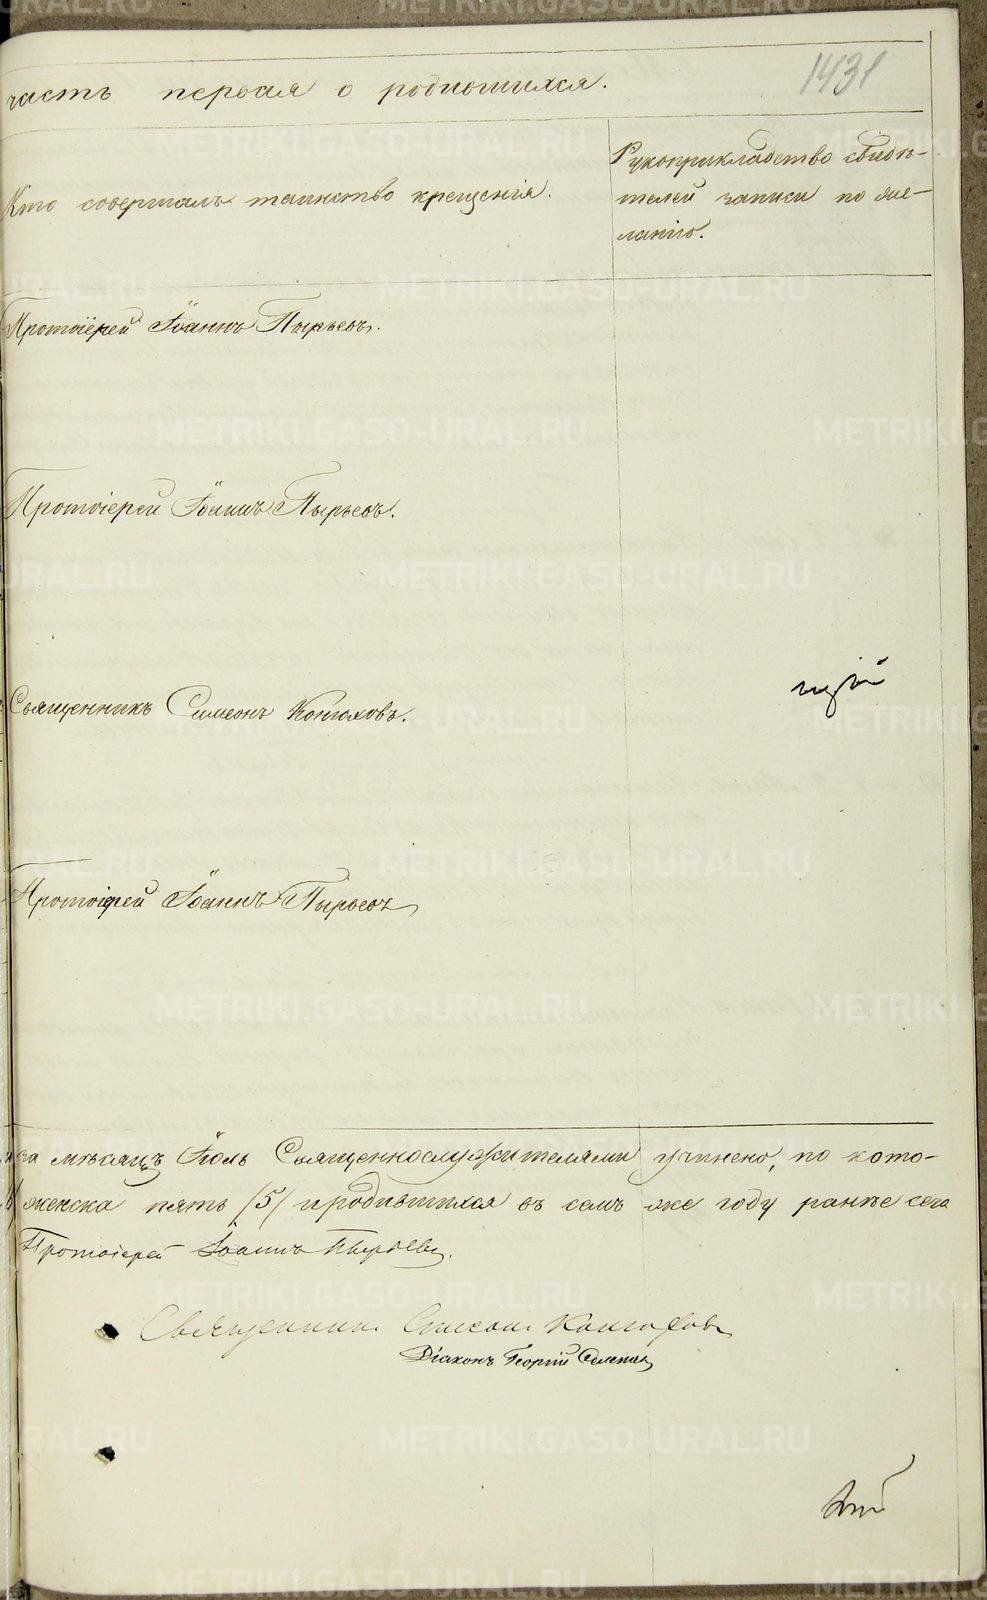 1431
часть первая о родившихся.
Кто совершалъ таинство крещенія.
Рукоприкладство свидѣ-
телей записи по же-
ланію.
Протоіерей Іоаннъ Пырьевъ.
Протоіерей Іоаннъ Пырьевъ.
Священникъ Симеонъ Конюховъ.
Протоіерей Іоаннъ Пырьевъ
за мѣсяцъ Іюль Священнослужителями учинено, по кото-
женска пять /5/ и родившихся въ семъ же году ранѣе сего
Протоіерей Іоаннъ Пырьевъ.
Священникъ Симеонъ Конюховъ
Діаконъ Георгій
METRIKI.GASO-URAL.RU